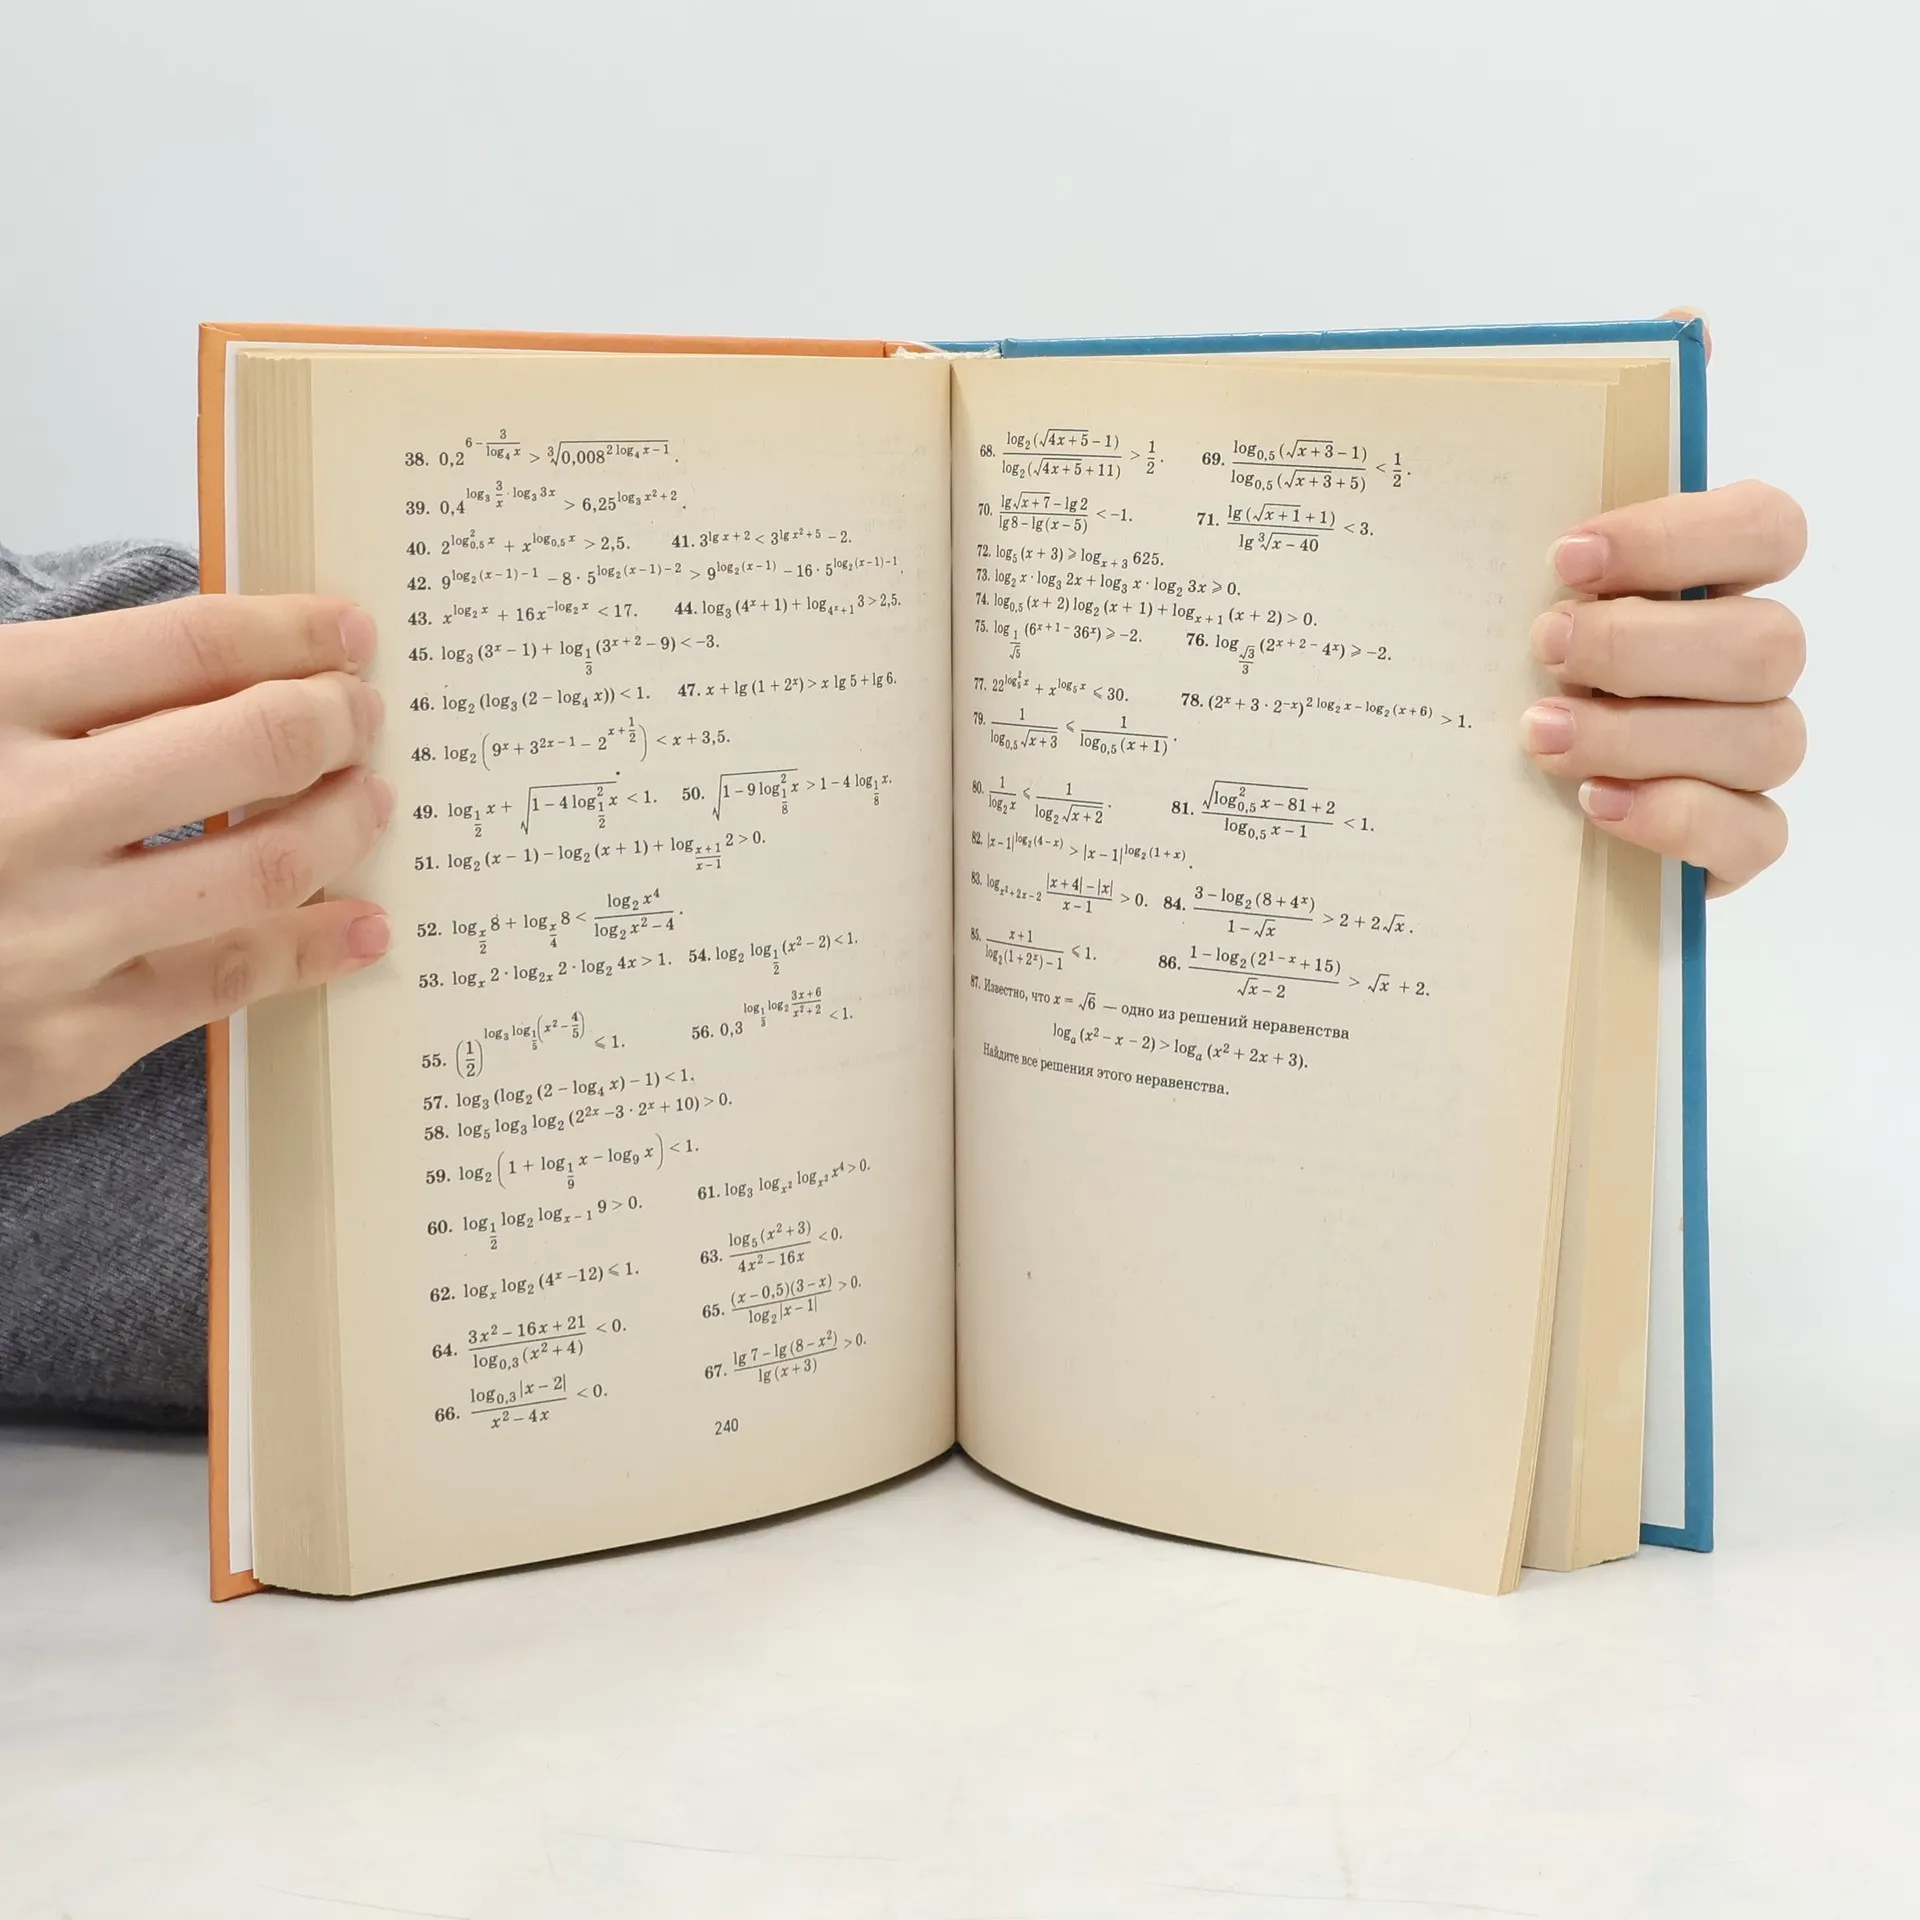 38. 0,2^{6 − \frac{3}{log₄ x}} > ∛(0,008^{2 log₄ x − 1}).
39. 0,4^{log₃ \frac{3}{x} · log₃ 3x} > 6,25^{log₃ x² + 2}.
40. 2^{log²_{0,5} x} + x^{log_{0,5} x} > 2,5. 41. 3^{lg x + 2} < 3^{lg x² + 5} − 2.
42. 9^{log₂ (x − 1) − 1} − 8 · 5^{log₂ (x − 1) − 2} > 9^{log₂ (x − 1)} − 16 · 5^{log₂ (x − 1) − 1}.
43. x^{log₂ x} + 16x^{−log₂ x} < 17. 44. log₃ (4^x + 1) + log_{4^x + 1} 3 > 2,5.
45. log₃ (3^x − 1) + log_{\frac{1}{3}} (3^{x + 2} − 9) < −3.
46. log₂ (log₃ (2 − log₄ x)) < 1. 47. x + lg (1 + 2^x) > x lg 5 + lg 6.
48. log₂ (9^x + 3^{2x − 1} − 2^{x + \frac{1}{2}}) < x + 3,5.
49. log_{\frac{1}{2}} x + √(1 − 4 log²_{\frac{1}{2}} x) < 1. 50. √(1 − 9 log²_{\frac{1}{8}} x) > 1 − 4 log_{\frac{1}{8}} x.
51. log₂ (x − 1) − log₂ (x + 1) + log_{\frac{x + 1}{x − 1}} 2 > 0.
52. log_{\frac{x}{2}} 8 + log_{\frac{x}{4}} 8 < \frac{log₂ x⁴}{log₂ x² − 4}.
53. log_x 2 · log_{2x} 2 · log₂ 4x > 1. 54. log₂ log_{\frac{1}{2}} (x² − 2) < 1.
55. (\frac{1}{2})^{log₃ log_{\frac{1}{5}} (x² − \frac{4}{5})} ⩽ 1. 56. 0,3^{log_{\frac{1}{3}} log₂ \frac{3x + 6}{x² + 2}} < 1.
57. log₃ (log₂ (2 − log₄ x) − 1) < 1.
58. log₅ log₃ log₂ (2^{2x} − 3 · 2^x + 10) > 0.
59. log₂ (1 + log_{\frac{1}{9}} x − log₉ x) < 1.
60. log_{\frac{1}{2}} log₂ log_{x − 1} 9 > 0. 61. log₃ log_{x²} log_{x²} x⁴ > 0.
62. log_x log₂ (4^x − 12) ⩽ 1. 63. \frac{log₅ (x² + 3)}{4x² − 16x} < 0.
64. \frac{3x² − 16x + 21}{log_{0,3} (x² + 4)} < 0. 65. \frac{(x − 0,5)(3 − x)}{log₂ |x − 1|} > 0.
66. \frac{log_{0,3} |x − 2|}{x² − 4x} < 0. 67. \frac{lg 7 − lg (8 − x²)}{lg (x + 3)} > 0.
240
68. \frac{log₂ (√(4x + 5) − 1)}{log₂ (√(4x + 5) + 11)} > \frac{1}{2}. 69. \frac{log_{0,5} (√(x + 3) − 1)}{log_{0,5} (√(x + 3) + 5)} < \frac{1}{2}.
70. \frac{lg √(x + 7) − lg 2}{lg 8 − lg (x − 5)} < −1. 71. \frac{lg (√(x + 1) + 1)}{lg ∛(x − 40)} < 3.
72. log₅ (x + 3) ⩾ log_{x + 3} 625.
73. log₂ x · log₃ 2x + log₃ x · log₂ 3x ⩾ 0.
74. log_{0,5} (x + 2) log₂ (x + 1) + log_{x + 1} (x + 2) > 0.
75. log_{\frac{1}{√5}} (6^{x + 1} − 36^x) ⩾ −2. 76. log_{\frac{√3}{3}} (2^{x + 2} − 4^x) ⩾ −2.
77. 22^{log²₅ x} + x^{log₅ x} ⩽ 30. 78. (2^x + 3 · 2^{−x})^{2 log₂ x − log₂ (x + 6)} > 1.
79. \frac{1}{log_{0,5} √(x + 3)} ⩽ \frac{1}{log_{0,5} (x + 1)}.
80. \frac{1}{log₂ x} ⩽ \frac{1}{log₂ √(x + 2)}. 81. \frac{√(log²_{0,5} x − 81) + 2}{log_{0,5} x − 1} < 1.
82. |x − 1|^{log₂ (4 − x)} > |x − 1|^{log₂ (1 + x)}.
83. log_{x² + 2x − 2} \frac{|x + 4| − |x|}{x − 1} > 0. 84. \frac{3 − log₂ (8 + 4^x)}{1 − √x} > 2 + 2√x.
85. \frac{x + 1}{log₂ (1 + 2^x) − 1} ⩽ 1. 86. \frac{1 − log₂ (2^{1 − x} + 15)}{√x − 2} > √x + 2.
87. Известно, что x = √6 — одно из решений неравенства
log_a (x² − x − 2) > log_a (x² + 2x + 3).
Найдите все решения этого неравенства.